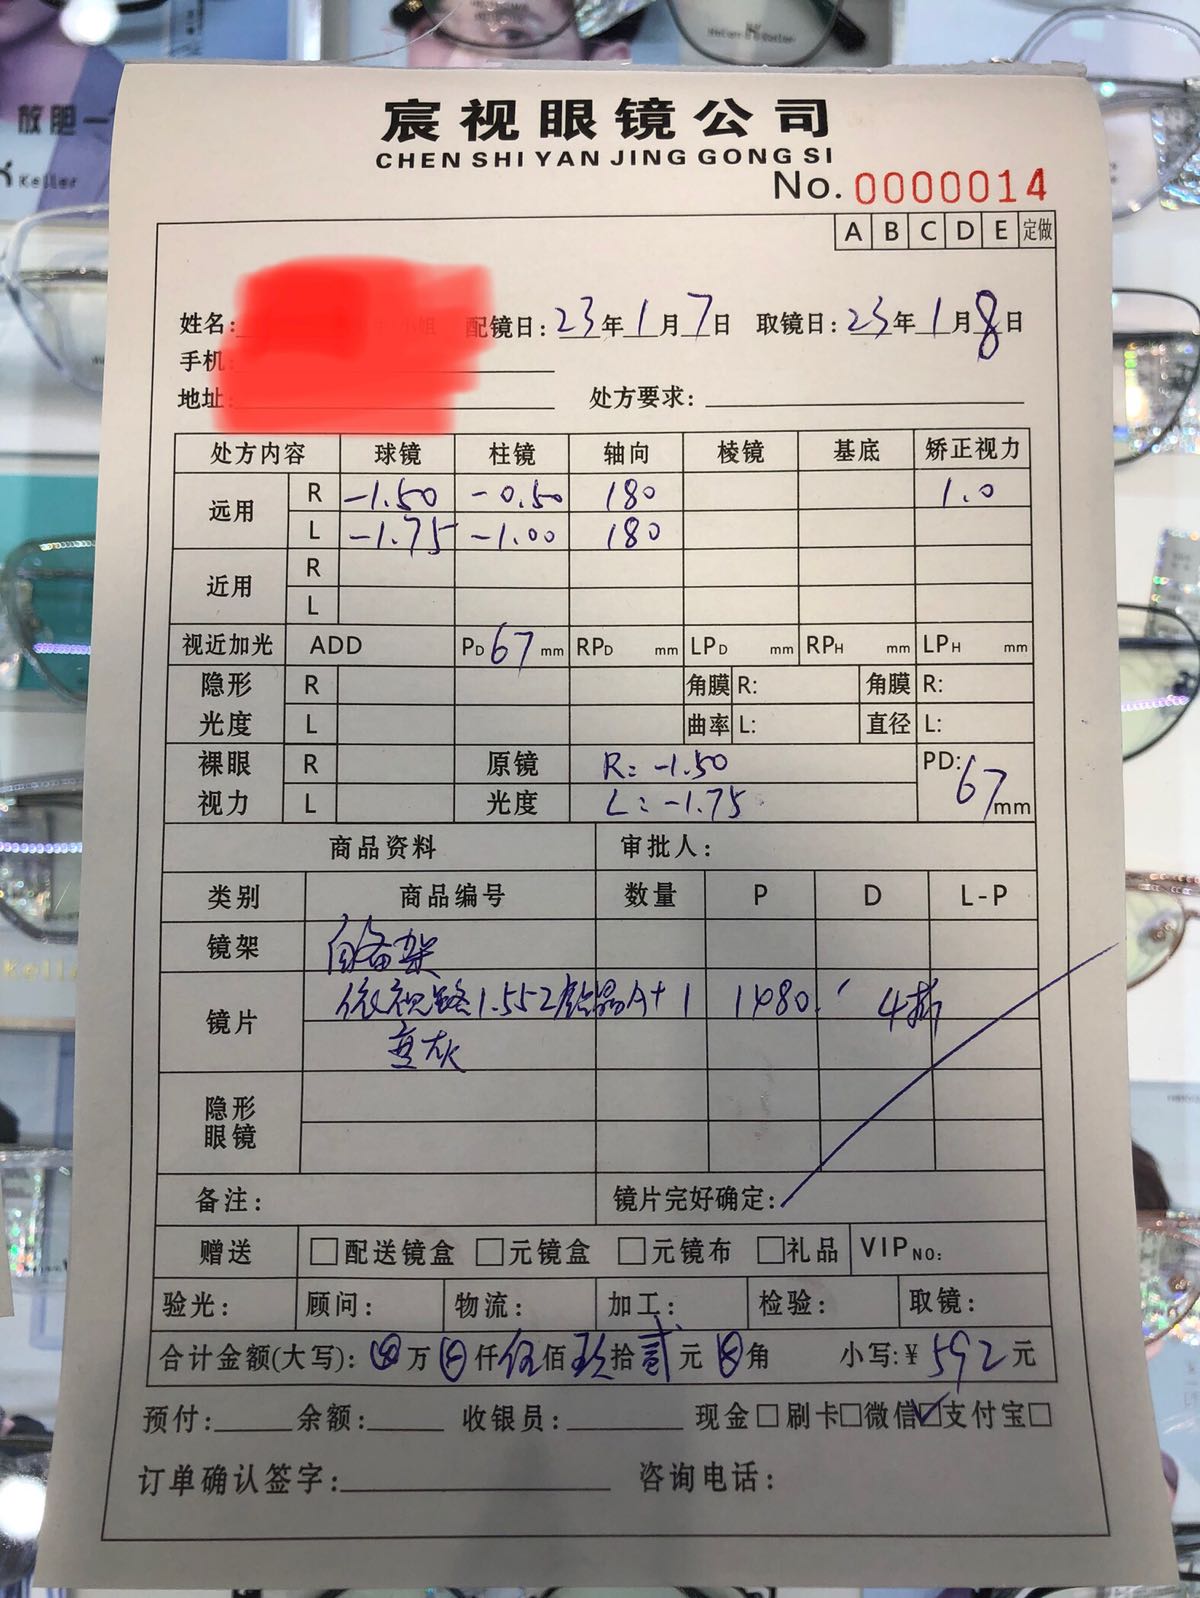 放胆一
Keller
宸视眼镜公司
CHEN SHI YAN JING GONG SI
No. 0000014
A B C D E 定做
姓名: 小姐 配镜日: 23年1月7日 取镜日: 23年1月8日
手机:
地址: 处方要求:
处方内容 球镜 柱镜 轴向 棱镜 基底 矫正视力
远用 R -1.50 -0.50 180 1.0
L -1.75 -1.00 180
近用 R
L
视近加光 ADD PD 67 mm RPD mm LPD mm RPH mm LPH mm
隐形 R 角膜 R: 角膜 R:
光度 L 曲率 L: 直径 L:
裸眼 R 原镜 R: -1.50 PD:
视力 L 光度 L: -1.75 67 mm
商品资料 审批人:
类别 商品编号 数量 P D L-P
镜架 自备架
镜片 依视路1.552钻晶A+ 1 1480. 4折
变灰
隐形
眼镜
备注: 镜片完好确定:
赠送 □配送镜盒 □元镜盒 □元镜布 □礼品 VIP NO:
验光: 顾问: 物流: 加工: 检验: 取镜:
合计金额(大写): 万 仟伍佰玖拾贰元 角 小写:¥592元
预付: 余额: 收银员: 现金□刷卡□微信☑支付宝□
订单确认签字: 咨询电话: